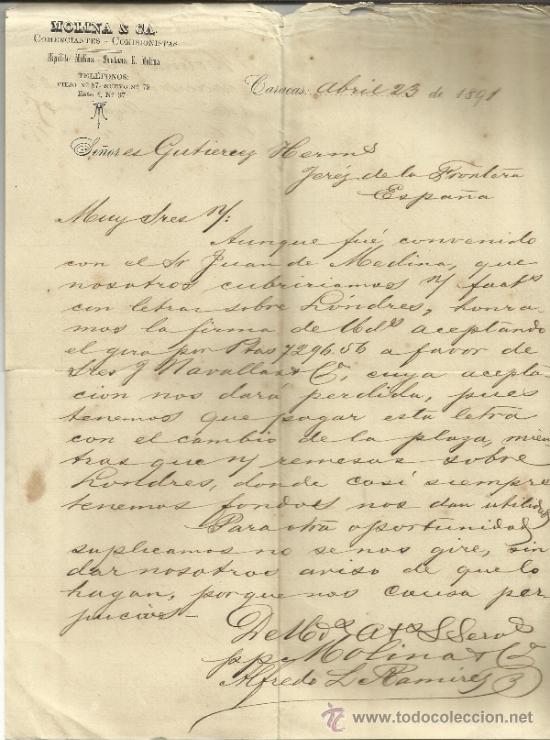 MOLINA & CA.
COMERCIANTES - COMISIONISTAS
Hipólito Molina - Santana E. Molina
TELÉFONOS:
VIEJO Nº 87 - NUEVO Nº 79
Este 4, Nº 37
Caracas, Abril 23 de 1891
Señores Gutierrez Herms
Jeréz de la Frontera
España
Muy Sres N/:
Aunque fué convenido
con el Sr Juan de Medina, que
nosotros cubririamos N/ facts
con letras sobre Lóndres, honra
mos la firma de Uds aceptando
el giro por Ptas 7296.56 a favor de
Sres J Navallas & Ca, cuya acepta
cion nos dará perdida, pues
tenemos que pagar esta letra
con el cambio de la plaza, mien
tras que N/ remesas sobre
Londres, donde casi siempre
tenemos fondos nos dan utilidad
Para otra oportunidad
suplicamos no se nos gire, sin
dar nosotros aviso de que lo
hagan, porque nos causa per
juicios -
De Uds Ats S. Servs
pp Molina & Ca
Alfredo L Ramirez
www.todocoleccion.net